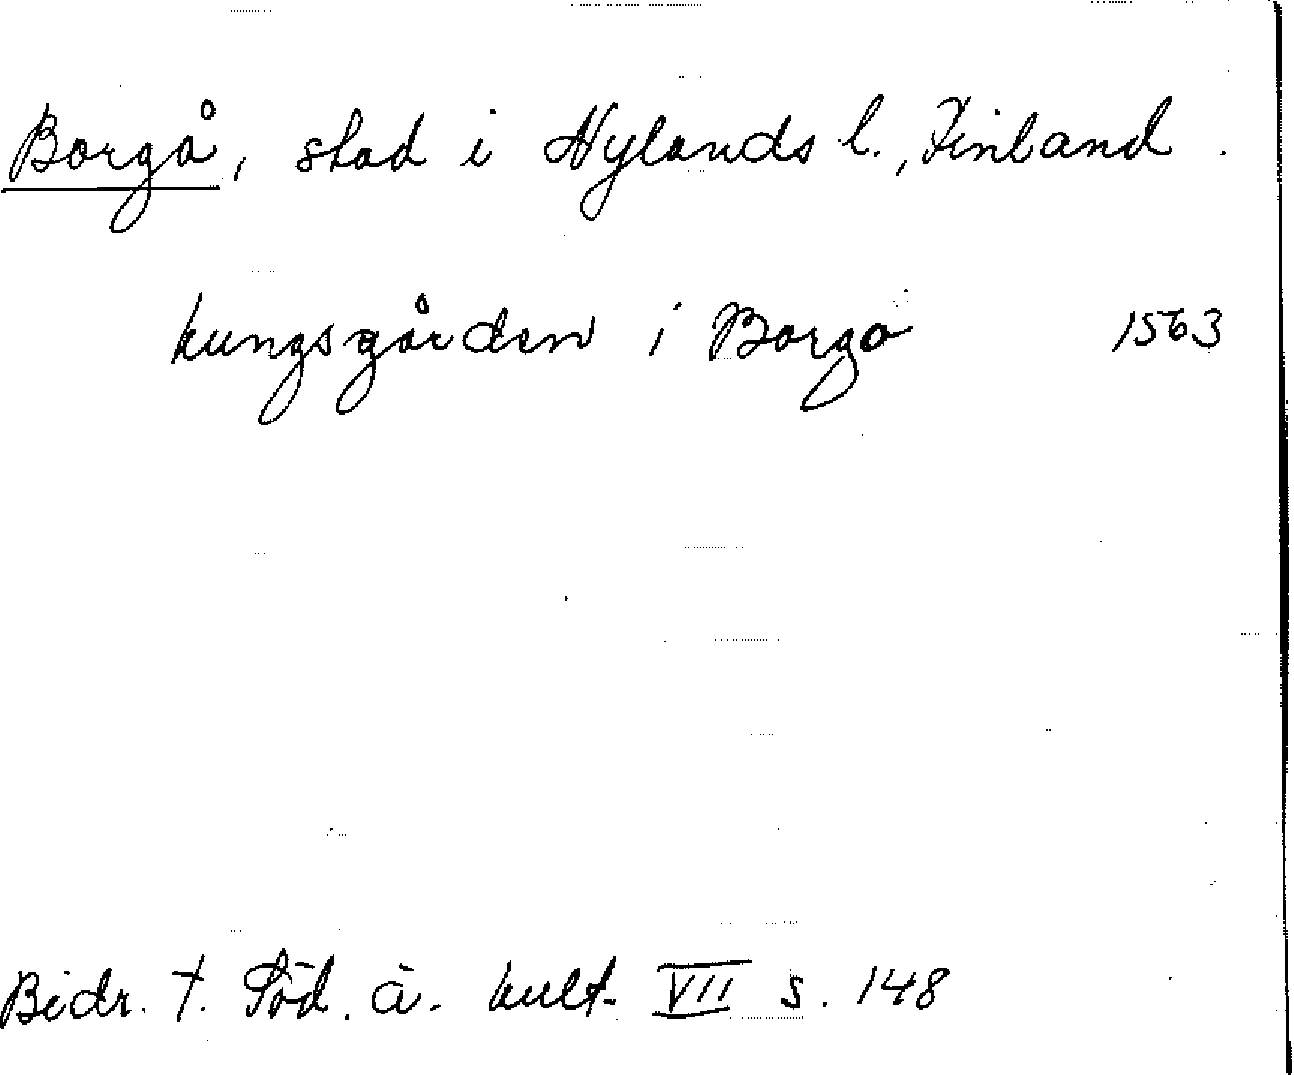 Borgå, stad i Nylands l., Finland.
kungsgården i Borgo 1563
Bidr. t. Söd. ä. kult. VII s. 148